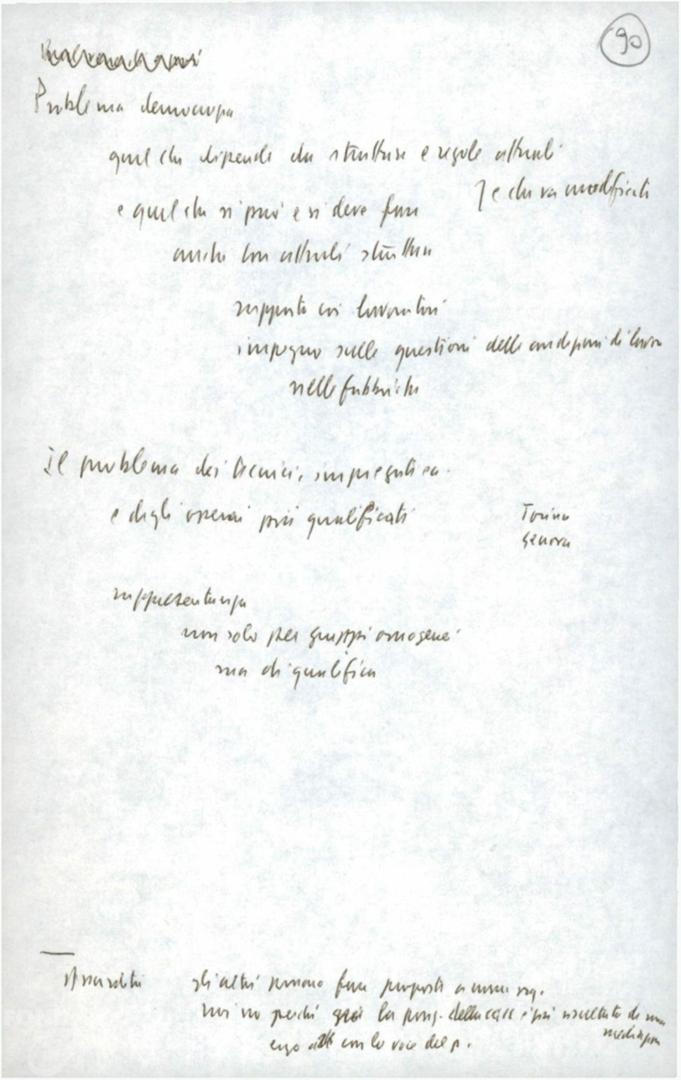 90
Problema democrazia
quel che dipende da strutture e regole attuali
] e che va modificati
e quel che si può e si deve fare
anche con attuali strutture
rapporto coi lavoratori
impegno sulle questioni delle condizioni di lavoro
nelle fabbriche
il problema dei tecnici, impiegati ecc.
e degli operai più qualificati
Torino
Genova
rappresentanza
non solo per gruppi omogenei
ma di qualifica
gli altri possono fare proposte a nome
noi no perché già la della è già risultato di una
mediazione
ergo con la voce del p.